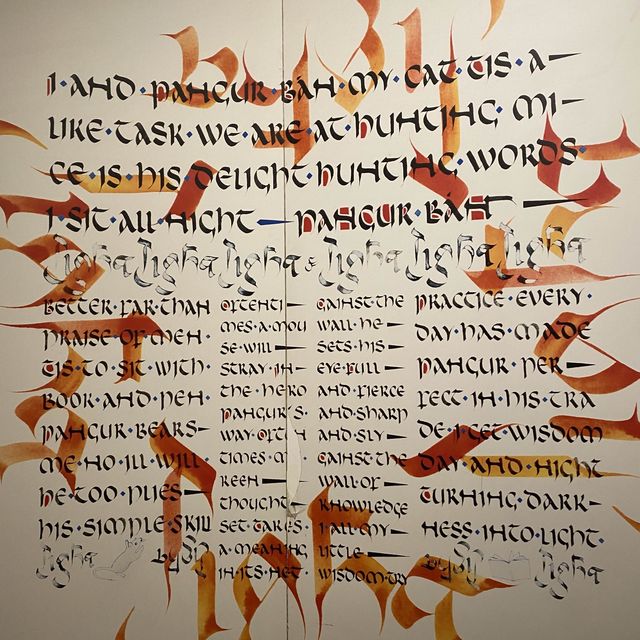 I·AND·PANGUR·BÁN·MY·CAT·TIS·A—
LIKE·TASK·WE·ARE·AT·HUNTING·MI—
CE·IS·HIS·DELIGHT·HUNTING·WORDS·
I·SIT·ALL·NIGHT—PANGUR·BÁN—
BETTER·FAR·THAN
PRAISE·OF·MEN·
TIS·TO·SIT·WITH·
BOOK·AND·PEN·
PANGUR·BEARS-
ME·NO·ILL·WILL·
HE·TOO·PLIES—
HIS·SIMPLE·SKILL
OFTENTI—
MES·A·MOU
SE·WILL—
STRAY·IN—
THE·HERO
PANGUR'S·
WAY·OFTEN
TIMES·M
KEEN—
THOUGHT
SET·TAKES·
A·MEANING
IN·ITS·NET·
GAINST·THE
WALL·HE—
SETS·HIS—
EYE·FULL—
AND·FIERCE
AND·SHARP
AND·SLY—
GAINST·THE
WALL·OF—
KNOWLEDGE
I·ALL·MY—
LITTLE—
WISDOM·TRY
PRACTICE·EVERY·
DAY·HAS·MADE
PANGUR·PER—
FECT·IN·HIS·TRA
DE·I·GET·WISDOM
DAY·AND·NIGHT
TURNING·DARK—
NESS·INTO·LIGHT·